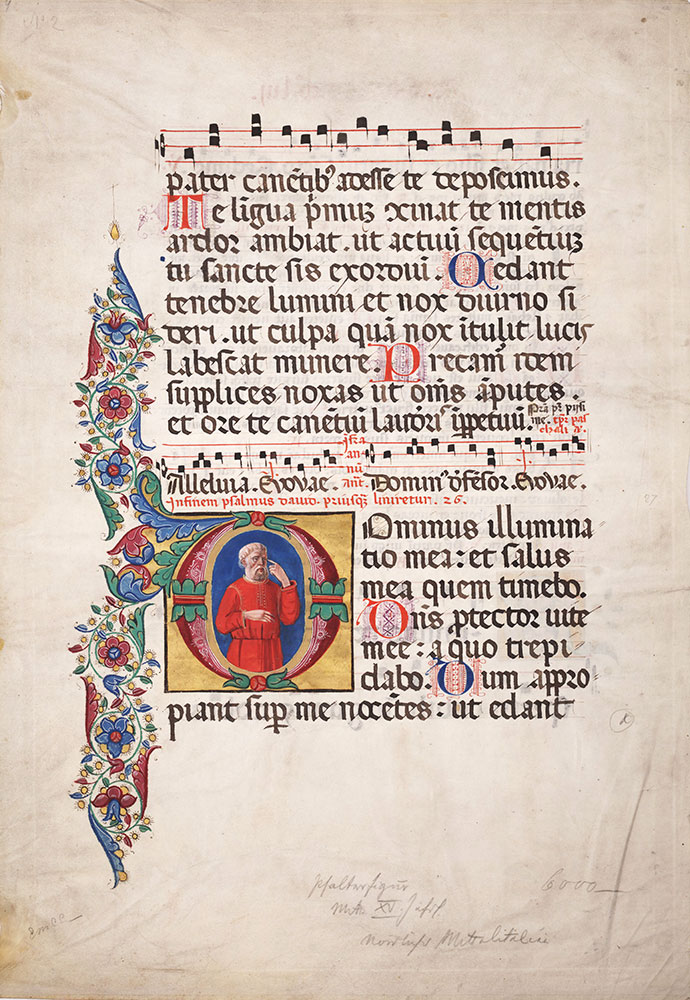 pater canētibꝰ adesse te deposcimus.
Te līgua pͥmuꝫ ꝯcinat te mentis
ardor ambiat. ut actuū sequētiuꝫ
tu sancte sis exordiū. Cedant
tenebre lumini et nox diurno si
deri. ut culpa quā nox ītulit lucis
labescat munere. Precamͬ idem
supplices noxas ut oms āputes.
et ore te canētiū lauderͥ īppetuū.
Alleluia. Evovae. Domin' defēsor. Evovae.
In finem psalmus david. priusqꝫ liniretur. 26.
Dominus illumina
tio mea: et salus
mea quem timebo.
Dn̄s ꝓtector uite
mee: a quo trepi
dabo. Dum appro
piant sup me nocētes: ut edant
Psalterfigur
Mitte XV. Jahrh.
Nördliches Mittelitalien
6000